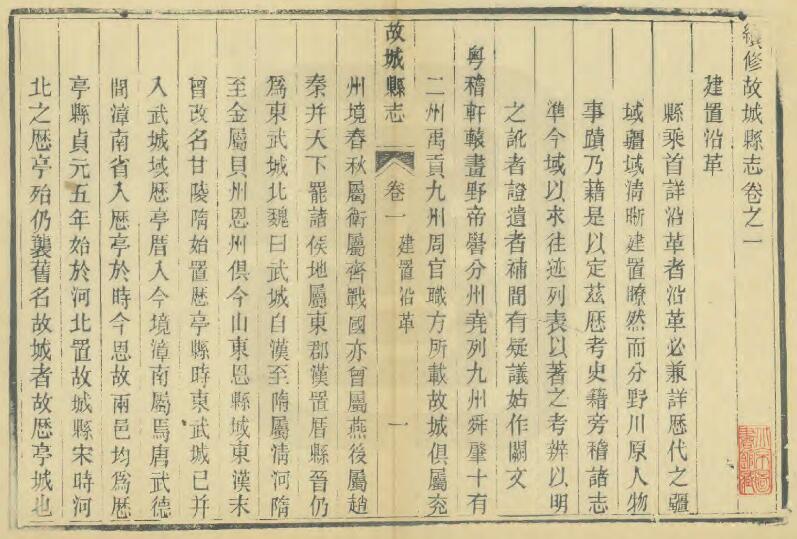 續修故城縣志卷之一
建置沿革
縣乘首詳沿革者沿革必兼詳歷代之疆
域疆域清晰建置瞭然而分野川原人物
事蹟乃藉是以定茲歷考史籍旁稽諸志
準今域以求往迹列表以著之考辨以明
之訛者證遺者補間有疑議姑作闕文
粵稽軒轅畫野帝嚳分州堯列九州舜肇十有
二州禹貢九州周官職方所載故城俱屬兗
故城縣志
卷一
建置沿革
一
州境春秋屬衛屬齊戰國亦曾屬燕後屬趙
秦并天下罷諸侯地屬東郡漢置厝縣晉仍
為東武城北魏曰武城自漢至隋屬清河隋
至金屬貝州恩州俱今山東恩縣域東漢末
曾改名甘陵隋始置歷亭縣時東武城已并
入武城域歷亭厝入今境漳南屬焉唐武德
間漳南省入歷亭於時今恩故兩邑均為歷
亭縣貞元五年始於河北置故城縣宋時河
北之歷亭殆仍襲舊名故城者故歷亭城也